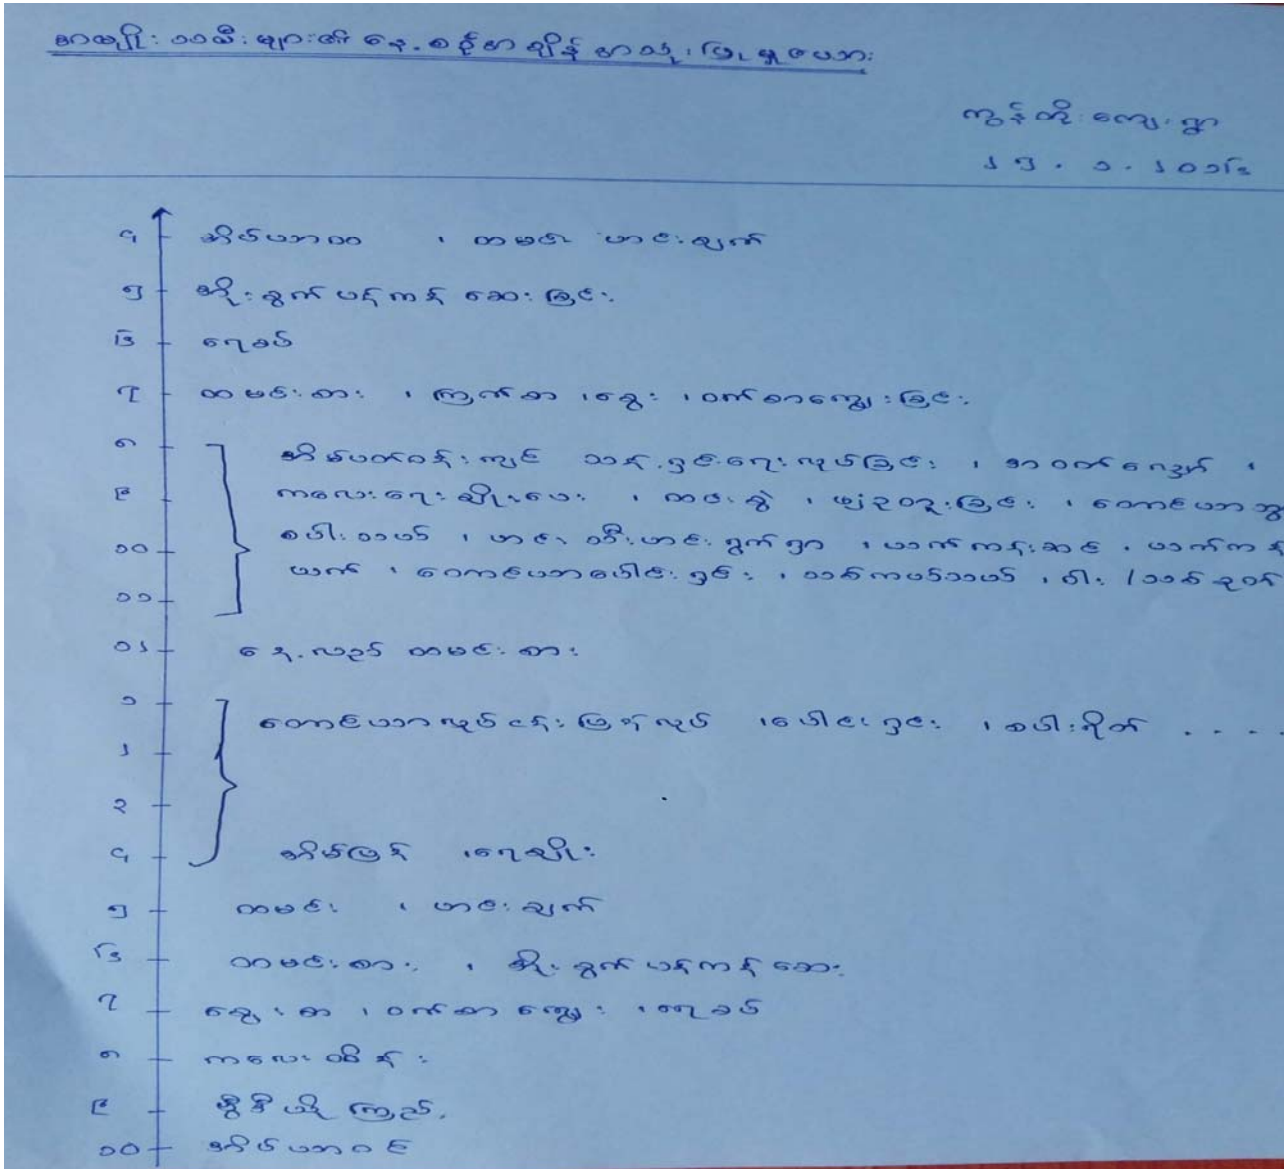 အမျိုးသမီးများ၏ နေ့စဉ်အချိန်အသုံးပြုမှုဇယား
ကွန်တိုကျေးရွာ
၂၅.၁.၂၀၁၆
၄ အိပ်ယာထ ၊ ထမင်း ဟင်းချက်
၅ အိုးခွက်ပန်ကန် ဆေးခြင်း
၆ ရေခပ်
၇ ထမင်းစား ၊ ကြက်စာ ၊ ခွေး ၊ ဝက်စာကျွေးခြင်း
၈ အိမ်ပတ်ဝန်းကျင် သန့်ရှင်းရေးလုပ်ခြင်း ၊ အဝတ်လျှော် ၊
၉ ကလေးရေချိုးပေး ၊ ၊ ဖျံခုတူးခြင်း ၊ တောင်ယာသွား
၁၀ စပါးသယ် ၊ ဟင်းသီးဟင်းရွက်ရှာ ၊ ယက်ကန်းဆင် ၊ ယက်ကန်
ယက် ၊ တောင်ယာပေါင်းရှင်း ၊ သစ်ကယ်သယ် ၊ ဝါး / သစ်ခုတ်
၁၁
၁၂ နေ့လည် ထမင်းစား
၁ တောင်ယာလုပ်ငန်းပြန်လုပ် ၊ ပေါင်းရှင်း ၊ စပါးရိတ် . . . .
၂
၃
၄ အိမ်ပြန် ၊ ရေချိုး
၅ ထမင်း ၊ ဟင်းချက်
၆ ထမင်းစား ၊ အိုးခွက်ပန်ကန်ဆေး
၇ ခွေးစာ ၊ ဝက်စာကျွေး ၊ ရေခပ်
၈ ကလေးထိန်း
၉ တွီဗီယို ကြည့်
၁၀ အိပ်ယာဝင်